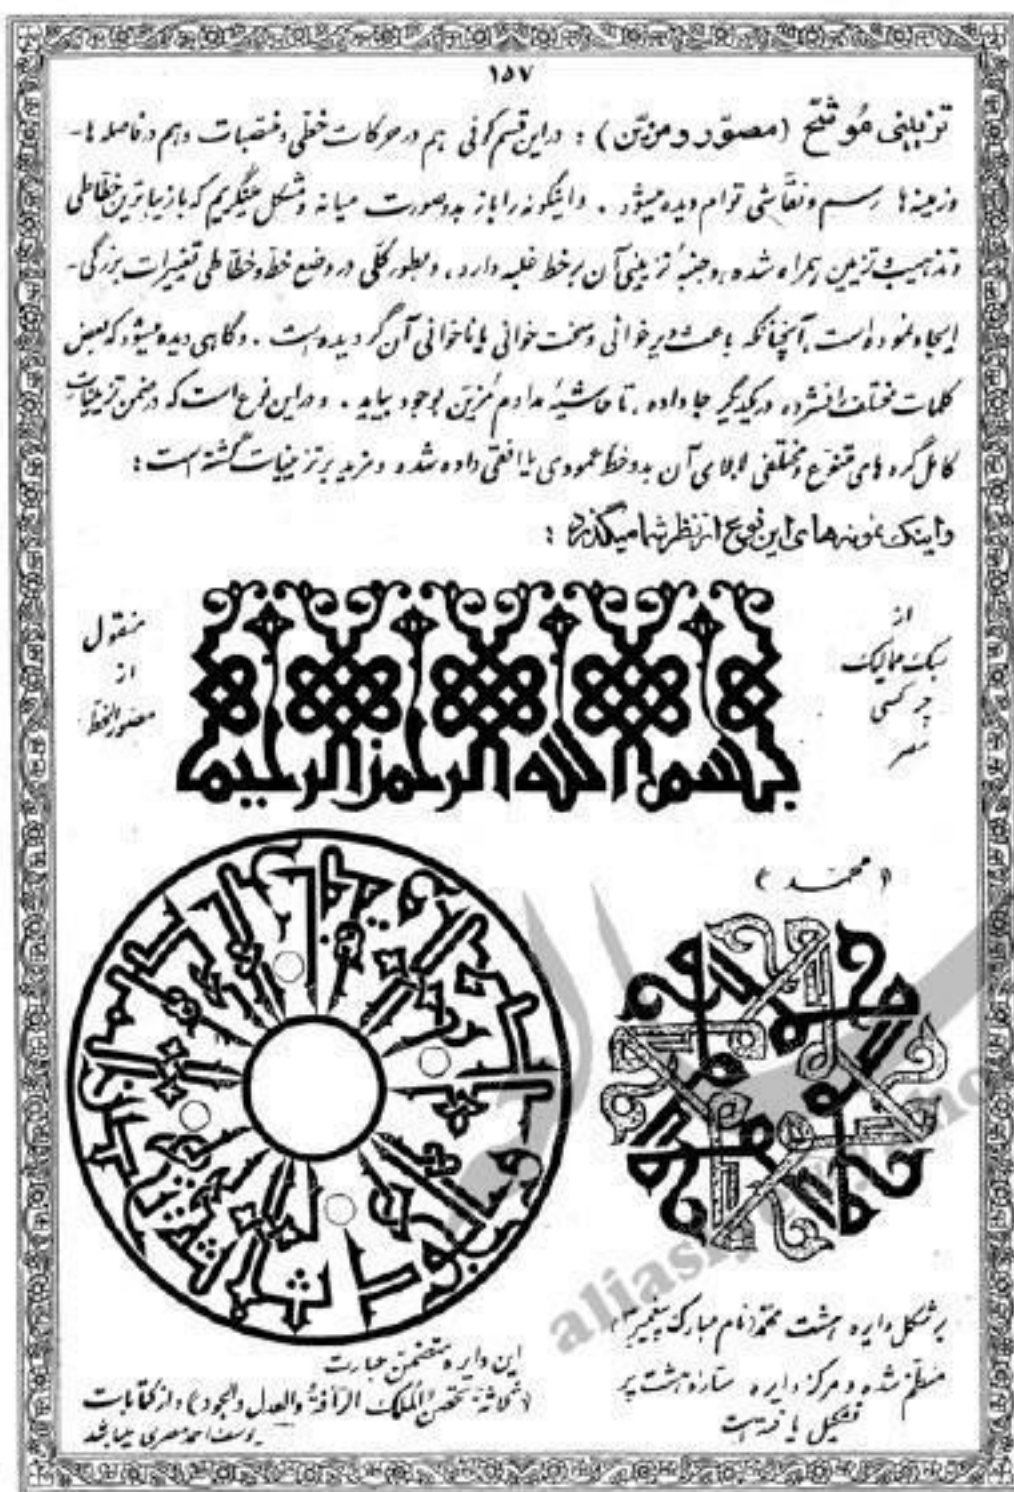 ۱۵۷
تزیینی مُوشّح (مصوّر و مزیّن) : در این قسم کوفی هم در حرکات خطّی و منتصبات و هم در فاصله ها-
وزمینه ها رسم و نقّاشی توام دیده میشود . و اینگونه را باز بدو صورت میانه و مشکل مینگریم که با زیباترین خطّاطی
و تذهیب و تزیین همراه شده ، و جنبهٔ تزیینی آن بر خط غلبه دارد ، و بطور کلّی در وضع خط و خطّاطی تغییرات بزرگی-
ایجاد نموده است ، آنچنانکه باعث دیرخوانی و سخت خوانی یا ناخوانی آن گردیده است . و گاهی دیده میشود که بعض
کلمات مختلف افشرده در یکدیگر جا داده ، تا حاشیهٔ مداوم مُزیّن بوجود بیاید . و در این نوع است که در ضمن تزیینات
کامل گره های متنوّع و مختلفی لابلای آن بدو خط عمودی یا افقی داده شده و مزید بر تزیینات گشته است :
و اینک نمونه های این نوع از نظر شما میگذرد :
از
سبک ممالیک
چرکسی
مصر
منقول
از
مصوّر الخط
بسم الله الرحمن الرحیم
(محمّد)
بر شکل دایره هشت محمّد (نام مبارک پیغمبر ص)
منظّم شده و مرکز دایره ستاره هشت پر
تشکیل یافته است
این دایره متضمّن عبارت
(ثلاثة تحصن الملک الرأفةُ والعدل والجود) و از کتابات
یوسف احمد مصری میباشد
aliasg